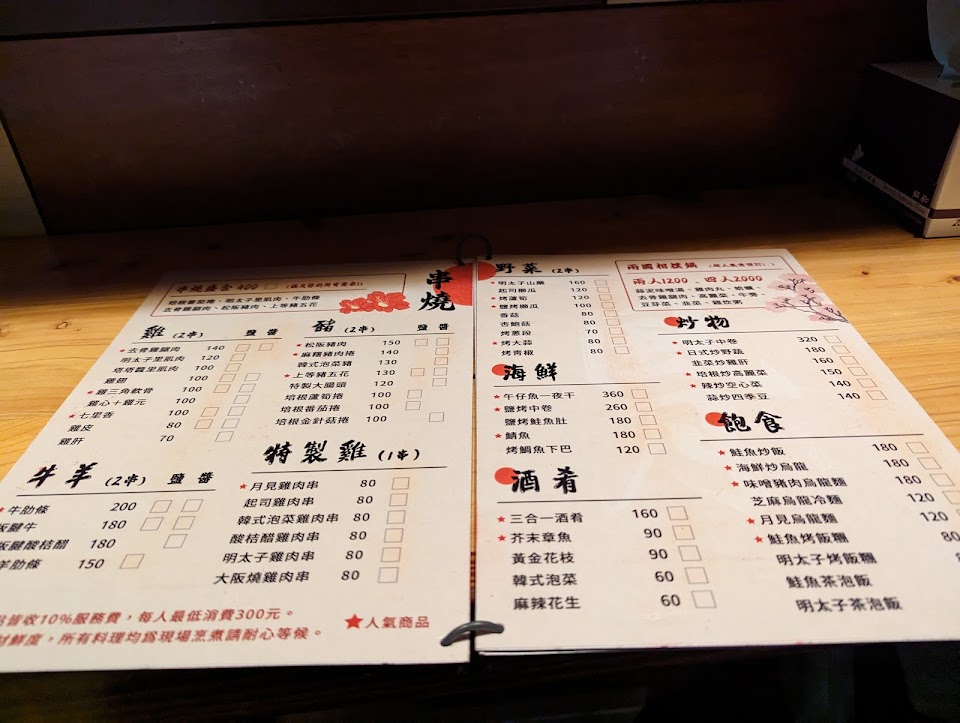 串燒
串燒盛合 400
培根番茄捲、明太子里肌肉、牛肋條
去骨雞腿肉、松阪豬肉、上等豬五花
雞 (2串) 鹽 醬
★去骨雞腿肉 140
明太子里肌肉 120
塔塔醬里肌肉 100
雞翅 100
★雞三角軟骨 100
雞心+雞元 100
★七里香 100
雞皮 80
雞肝 70
豬 (2串) 鹽 醬
★松阪豬肉 150
★麻糬豬肉捲 140
韓式泡菜豬 130
★上等豬五花 130
特製大腸頭 120
培根蘆筍捲 100
培根番茄捲 100
培根金針菇捲 100
牛羊 (2串) 鹽 醬
★牛肋條 200
阪腱牛 180
阪腱酸桔醋 180
羊肋條 150
特製雞 (1串)
★月見雞肉串 80
起司雞肉串 80
韓式泡菜雞肉串 80
酸桔醋雞肉串 80
明太子雞肉串 80
大阪燒雞肉串 80
皆收10%服務費，每人最低消費300元。
鮮度，所有料理均為現場烹煮請耐心等候。
★人氣商品
野菜 (2串)
★明太子山藥 160
起司櫛瓜 120
★烤蘆筍 120
★鹽烤櫛瓜 100
香菇 80
杏鮑菇 80
烤蔥段 70
★烤大蒜 80
烤青椒 80
海鮮
★午仔魚一夜干 360
★鹽烤中卷 260
鹽烤鮭魚肚 180
★鯖魚 180
烤鯛魚下巴 120
酒肴
★三合一酒肴 160
★芥末章魚 90
黃金花枝 90
韓式泡菜 60
麻辣花生 60
兩國相撲鍋
兩人1200、四人2000
蒜泥味噌湯、雞肉丸、蛤蠣、
去骨雞腿肉、高麗菜、牛蒡、
豆芽菜、韭菜、雜炊粥
炒物
★明太子中卷 320
★日式炒野蔬 180
韭菜炒雞肝 160
★培根炒高麗菜 150
★辣炒空心菜 140
蒜炒四季豆 140
飽食
★鮭魚炒飯 180
★海鮮炒烏龍 180
★味噌豬肉烏龍麵 180
芝麻烏龍冷麵 120
★月見烏龍麵 120
★鮭魚烤飯糰 80
明太子烤飯糰
鮭魚茶泡飯
明太子茶泡飯